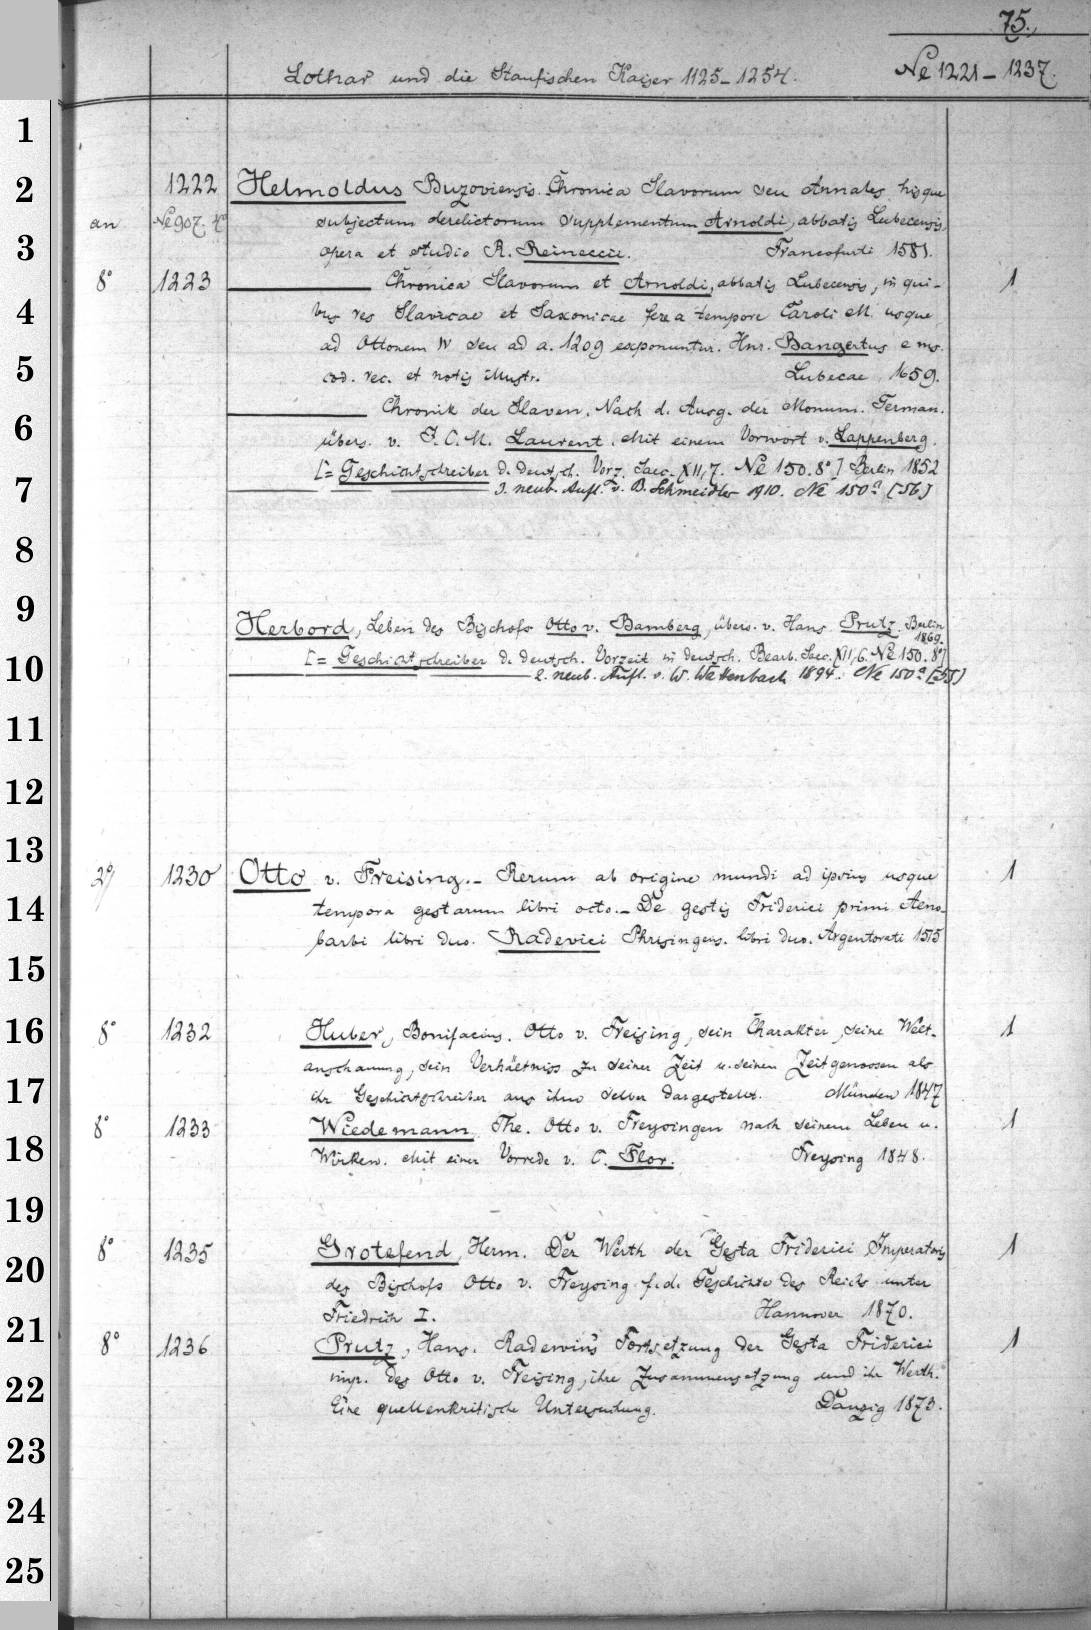 75.
Lothar und die Staufischen Kaiser 1125-1254. Ne 1221-1237.
1
2
3
4
5
6
7
8
9
10
11
12
13
14
15
16
17
18
19
20
21
22
23
24
25
1222 Helmoldus Buzoviensis. Chronica Slavorum seu Annales hisque
an Ne 907. 4° subjectum derelictorum supplementum Arnoldi, abbatis Lubecensis,
opera et studio R. Reineccii. Francofurti 1581.
8° 1223 Chronica Slavorum et Arnoldi, abbatis Lubecensis, in qui- 1
bus res Slavicae et Saxonicae fere a tempore Caroli M. usque
ad Ottonem IV seu ad a. 1209 exponuntur. Hnr. Bangertus e ms.
cod. rec. et notis illustr. Lubecae 1659.
Chronik der Slaven. Nach d. Ausg. der Monum. German.
übers. v. J. C. M. Laurent. Mit einem Vorwort v. Lappenberg.
[= Geschichtschreiber d. deutsch. Vorz. Saec. XII, 7. Ne 150. 8°] Berlin 1852
3. neub. Aufl. v. B. Schmeidler 1910. Ne 150a [56]
Herbord, Leben des Bischofs Otto v. Bamberg, übers. v. Hans Prutz. Berlin
1869.
[= Geschichtschreiber d. deutsch. Vorzeit in deutsch. Bearb. Saec. XII, 6. Ne 150. 8°]
2. neub. Aufl. v. W. Wattenbach 1894. Ne 150a [55]
2° 1230 Otto v. Freising. - Rerum ab origine mundi ad ipsius usque 1
tempora gestarum libri octo. - De gestis Friderici primi Aeno-
barbi libri duo. Radevici Phrisingens. libri duo. Argentorati 1515
8° 1232 Huber, Bonifacius. Otto v. Freising, sein Charakter, seine Welt- 1
anschauung, sein Verhältniss zu seiner Zeit u. seinen Zeitgenossen als
ihr Geschichtschreiber aus ihm selber dargestellt. München 1847
8° 1233 Wiedemann, The. Otto v. Freysingen nach seinem Leben u. 1
Wirken. Mit einer Vorrede v. C. Flor. Freysing 1848.
8° 1235 Grotefend, Herm. Der Werth der Gesta Friderici Imperatoris 1
des Bischofs Otto v. Freysing f. d. Geschichte des Reichs unter
Friedrich I. Hannover 1870.
8° 1236 Prutz, Hans. Radewin's Fortsetzung der Gesta Friderici 1
imp. des Otto v. Freising, ihre Zusammensetzung und ihr Werth.
Eine quellenkritische Untersuchung. Danzig 1873.